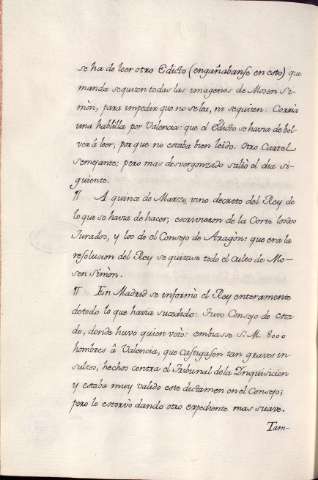 se ha de leer otro Edicto (engañabanse en esto) que
manda se quiten todas las imagenes de Mosen Si-
mòn, para impedir que no se las, ni se quiten. Corria
una hablilla por Valencia: que el Edicto se havia de bol-
ver à leer, por que no estaba bien leido. Otro Cartel
semejante; pero mas desvergonzado saliò el dia si-
guiente.
¶ A quince de Marzo, vino decreto del Rey de
lo que se havia de hacer; escrivieron de la Corte los dos
Jurados, y los de el Consejo de Aragòn: que era la
resolucion del Rey se quitase todo el culto de Mo-
sen Simòn.
¶ En Madrid se informò el Rey enteramente
de todo lo que havia sucedido: Tuvo Consejo de esta-
do, donde huvo quien voto: embiasse S. M. 8000
hombres â Valencia, que castigasen tan graves in-
sultos, hechos contra el Tribunal de la Inquisicion
y estaba muy valido este dictamen en el Consejo;
pero le estorvò dando otro expediente mas suave.
Tam-